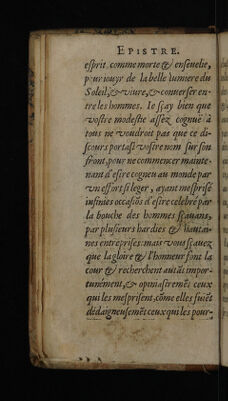 EPISTRE.
esprit, comme morte & enseuelie,
pour iouyr de la belle lumiere du
Soleil, & viure, & conuerser en-
tre les hommes. Ie sçay bien que
vostre modestie assez cognuë à
tous ne voudroit pas que ce di-
scours portast vostre nom sur son
front, pour ne commencer mainte-
nant d'estre cogneu au monde par
vn effort si leger, ayant mesprisé
infinies occasiõs d'estre celebré par
la bouche des hommes sçauans,
par plusieurs hardies & hautai-
nes entreprises: mais vous sçauez
que la gloire & l'honneur font la
cour & recherchent autãt impor-
tunément, & opiniastremẽt ceux
qui les mesprisent, cõme elles fuiẽt
dédaigneusemẽt ceux qui les pour-